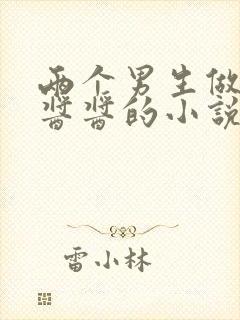 两个男生做
酱酱的小说
雷小林